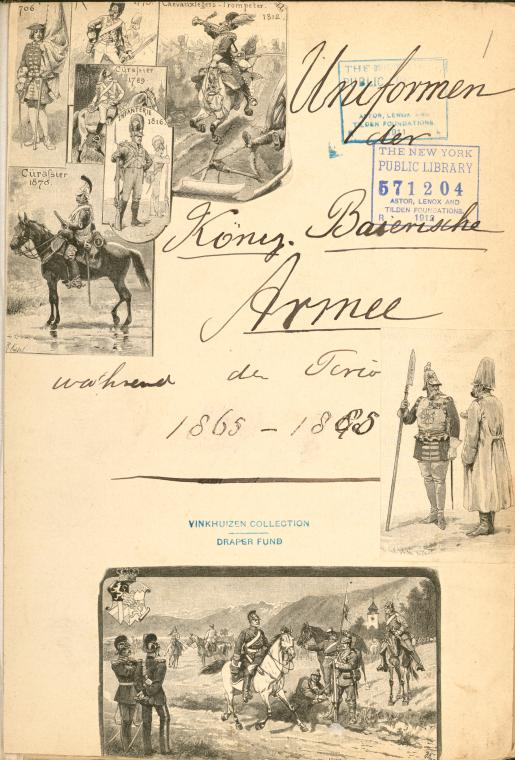 706
Chevauxlegers-Trompeter.
1812.
Cürassier
1789
INFANTERIE
1816
Cürassier
1876.
1
Uniformen
der
THE
PUBLIC
ASTOR, LENOX AND
TILDEN FOUNDATIONS
THE NEW YORK
PUBLIC LIBRARY
571204
ASTOR, LENOX AND
TILDEN FOUNDATIONS
R 1912
König. Baierische
Armee
während der
1865 - 18
VINKHUIZEN COLLECTION
DRAPER FUND